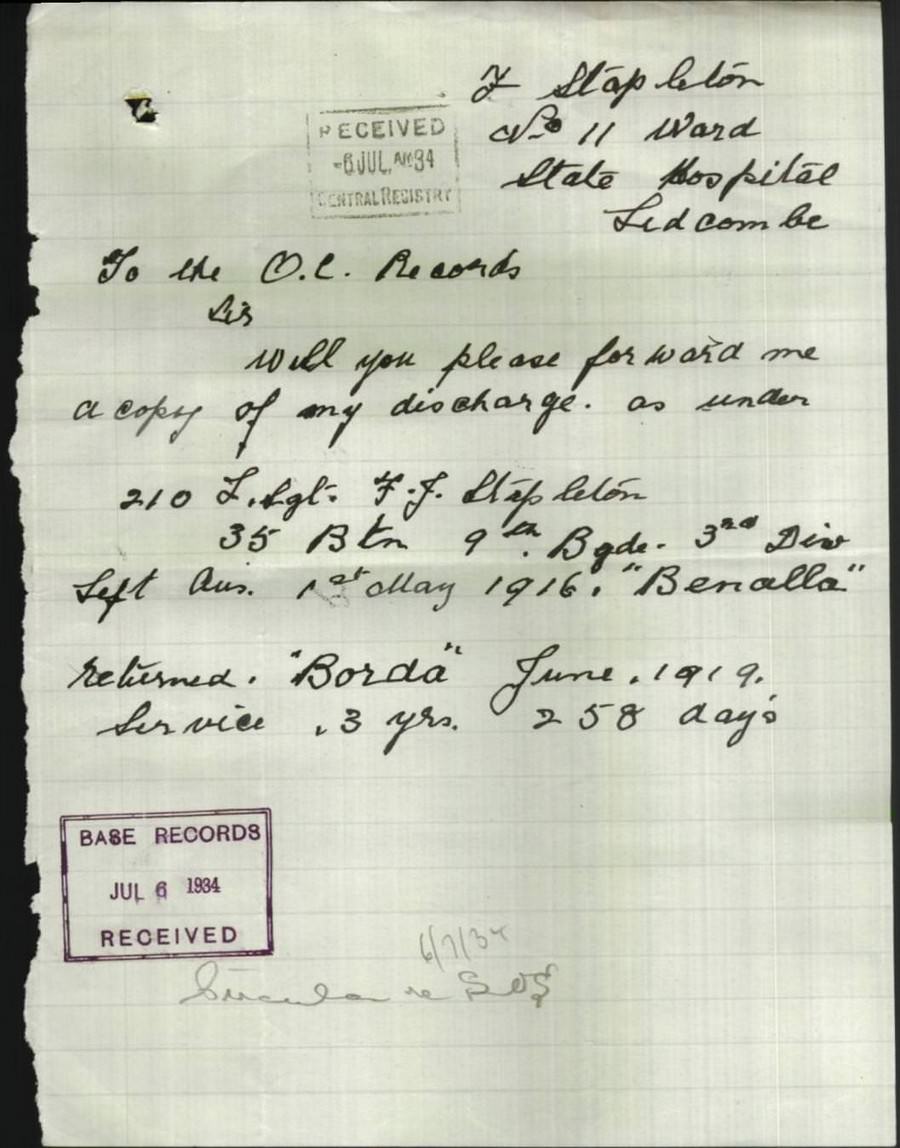 F Stapleton
No 11 Ward
State Hospital
Lidcombe
RECEIVED
-6 JUL. 34
CENTRAL REGISTRY
To the O.C. Records
Sir
Will you please forward me
a copy of my discharge. as under
210 L.Sgt. F.J. Stapleton
35 Btn 9th. Bgde. 3rd Div
Left Aus. 1st May 1916. "Benalla"
returned. "Borda" June. 1919.
Service .3 yrs. 258 days
BASE RECORDS
JUL 6 1934
RECEIVED
6/7/34
Circular re